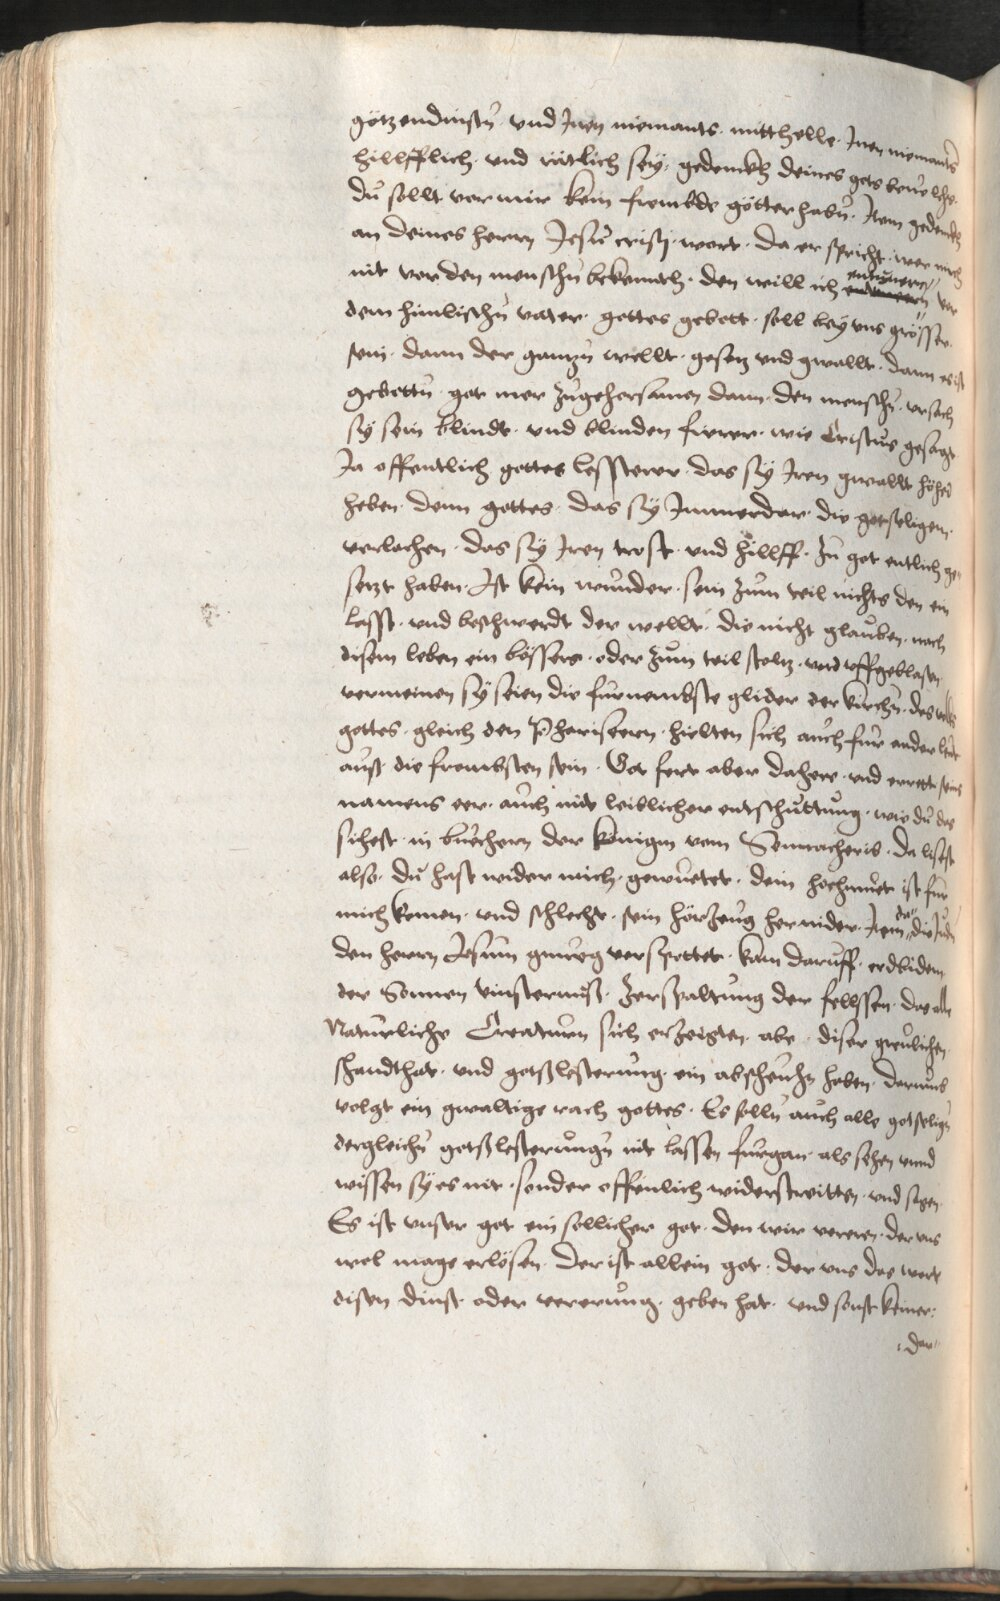 götzendinstn̄ · vnd Inen niemants · mitthelle · Inen niemants
hillfflich · vnd rätlich sey · gedenckh deines gots beuelhs ·
du sollt vor mir kein frembde götter habn̄ · Item gedenckh
an deines herrn Jesu cristj · wort · da er spricht · wer mich
nit vor den menschn̄ bekennth · den will ich vor
dem himlischn̄ vater · gottes gebott · soll bey vns grösser
sein · dann der gantzn̄ wellt · gesetz vnd gwallt · dann es ist
gebottn̄ · got mer zugehorsamen dann · den menschn̄ · vrsach
sy sein blindt · vnd blinden fierer · wie Cristus gesagt
Ja offentlich gottes lessterer · das sy Iren gwallt höher
heben · denn gottes · das sy Immerdar · die gotseligen ·
verlachen · das sy Iren trost · vnd hillff · zu got entlich ge-
setzt haben · Ist kein wunder · sein zum teil nichts den ein
lasst · vnd beschwerdt der wellt · die nicht glauben · nach
disem leben ein bössers · oder zum teil stoltz · vnd vffgeblasen
vermeinen sy seien die furnembste glider der kirchn̄ · des volks
gottes · gleich den Phariseern · hielten sich auch fur ander leut
auß · die frombsten sein · Got fert aber daher · vnd errett seins
namens eer · auch mit leiblicher entschuttung · wie du das
sihest · in buechern der konigen vom Sennacherib · da lisest
also · du hast wider mich · gewuetet · dein hochmuet ist fur
mich komen · vnd schlecht · sein hörzeug hernider · Item da die Judn̄
den herrn Jesum gnueg verspottet · kam daruff · erdbidem
der Sonnen vinsternuß · zerspaltung der fellssen · das alle
Naturliche Creaturn sich erzeigten · abe · diser greulichen ·
schandthat · vnd gotßlesterung · ein abscheuhe haben · darumb
volgt ein gwaltige rach gottes · Es solln̄ auch alle gotselign̄
dergleichn̄ gotßlesterungn̄ nit lassen furgan · als sehen vnnd
wissen sy es nit · sonder offenlich widerstreitten · vnd sagen
Es ist vnser got ein sollicher got · den wir vereren · der vns
wol mage erlösen · der ist allein got · der vns das wort
disen dinst · oder vererung · geben hat · vnd sonst keiner ·
· der